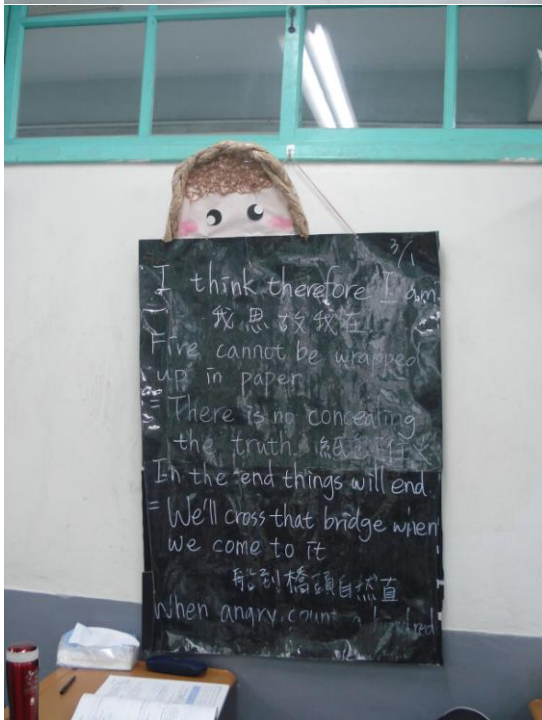 3/1
I think therefore I am
我思故我在
Fire cannot be wrapped
up in paper
= There is no concealing
the truth 紙
In the end things will end.
= We'll cross that bridge when
we come to it
船到橋頭自然直
When angry, count a hundred